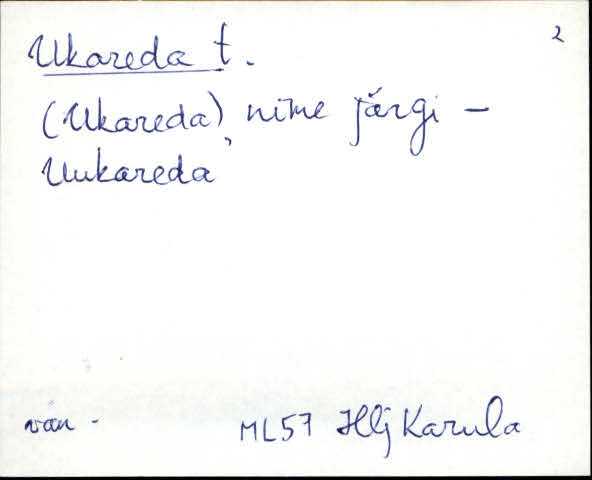 2
Ukareda t.
(Ukareda), nime järgi –
Uukareda
van -
ML57 Hlj Karula